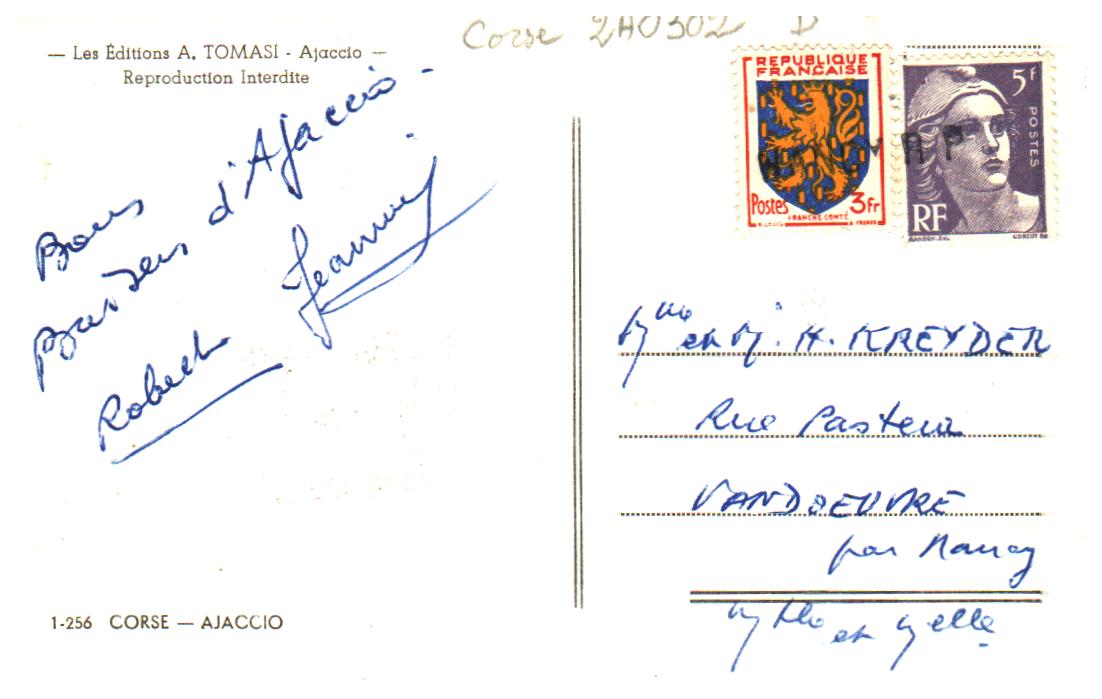 Corse 2A0302 D
— Les Éditions A. TOMASI - Ajaccio —
Reproduction Interdite
Bons
Baisers d'Ajaccio.
Robert Jeannine
1-256 CORSE — AJACCIO
REPUBLIQUE
FRANÇAISE
Postes 3fr
FRANCHE COMTÉ
5F
POSTES
RF
GANDON
CORTOT
Mme et M. H. KREYDER
Rue Pasteur
VANDOEUVRE
par Nancy
M et Melle